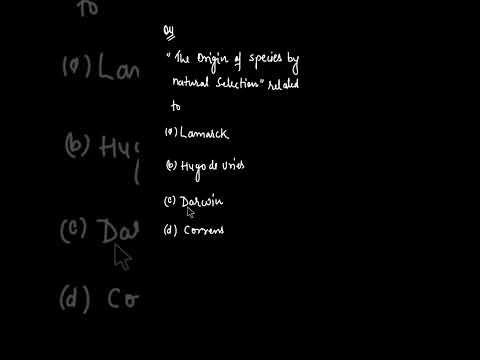 Q4
"The Origin of Species by
natural Selection" related
to
(a) Lamarck
(b) Hugo de Vries
(c) Darwin
(d) Correns
to
(a) Lam
(b) Hug
(c) Dar
(d) Co